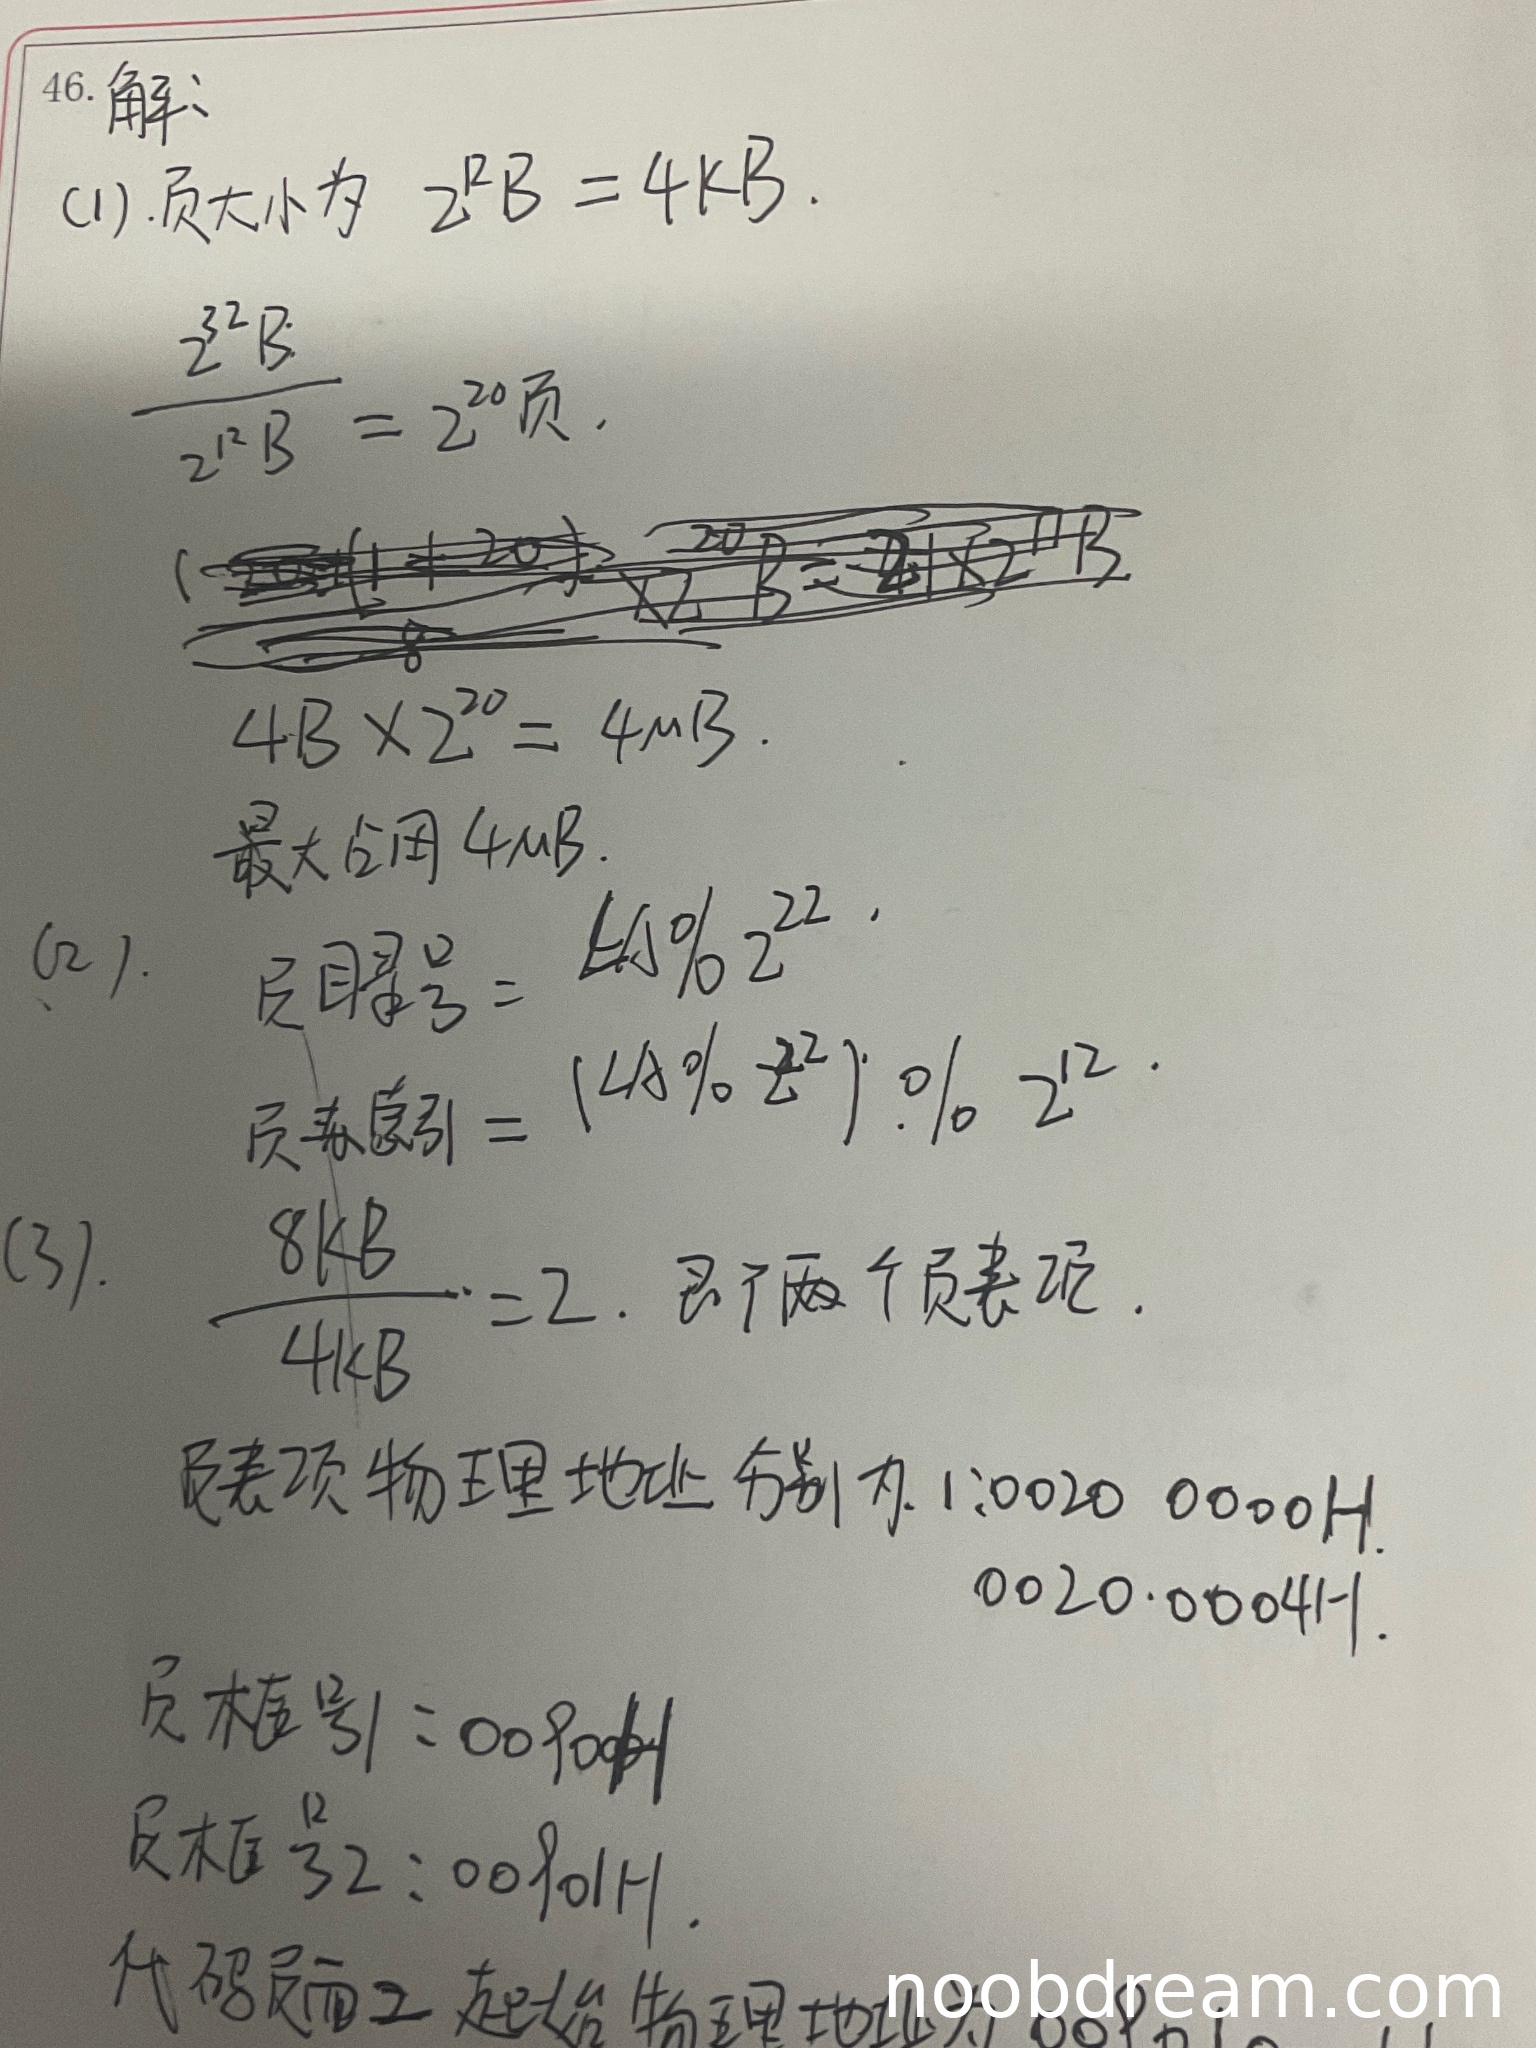 46. 解:
(1). 页大小为 2^12B = 4KB.
2^32B / 2^12B = 2^20页.
4B × 2^20 = 4MB.
最大占用4MB.
(2). 页目录号 = LA % 2^22.
页表索引 = (LA % 2^22) % 2^12.
(3). 8KB / 4KB = 2. 即两个页表项.
页表项物理地址分别为. 1:0020 0000H.
0020 0004H.
页框号1:00900H
页框号2:00901H.
代码页面2起始物理地址为
noobdream.com